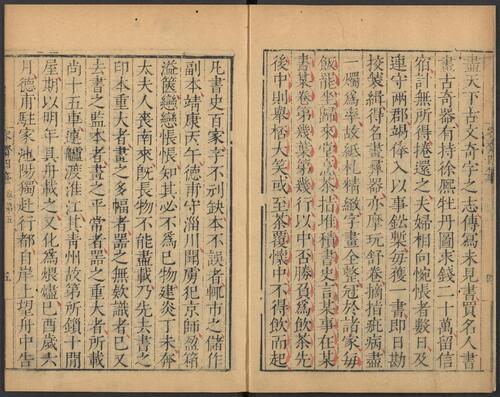 盡天下古文奇字之志傳寫未見書買名人書
畫古奇器有持徐熙牡丹圖求錢二十萬留信
宿計無所得捲還之夫婦相向惋悵者數日及
連守兩郡竭俸入以事鈆槧每獲一書即日勘
挍裝緝得名畫彝器亦摩玩舒卷摘指疵病盡
一燭爲率故紙札精緻字畫全整冠於諸家每
飯罷坐歸來堂指堆積書史言某事在某
書某卷第幾葉第幾行以中否勝負為飲茶先
後中則舉杯大笑或至茶覆懷中不得飲而起
凡書史百家字不刓缺本不誤者輒市之儲作
副本靖康丙午德甫守淄川聞虜犯京師盈箱
溢篋戀戀悵悵知其必不為己物建炎丁未奔
太夫人喪南來旣長物不能盡載乃先去書之
印本重大者畫之多幅者器之無款識者已又
去書之監本者畫之平常者器之重大者所載
尚十五車連艫渡淮江其青州故第所鎖十間
屋期以明年具舟載之又化為煨燼己酉歲六
月德甫駐家池陽獨赴行都自岸上望舟中告